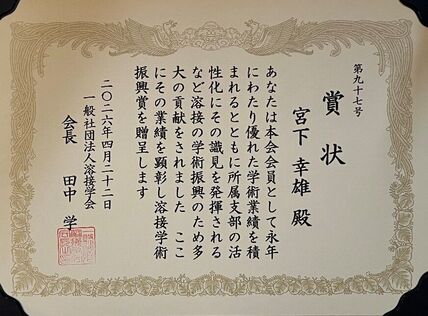 第九十七号
賞状
宮下 幸雄 殿
あなたは本会会員として永年
にわたり優れた学術業績を積
まれるとともに所属支部の活
性化にその識見を発揮される
など溶接の学術振興のため多
大の貢献をされました ここ
にその業績を顕彰し溶接学術
振興賞を贈呈します
二〇二六年四月二十二日
一般社団法人溶接学会
会長 田中 学